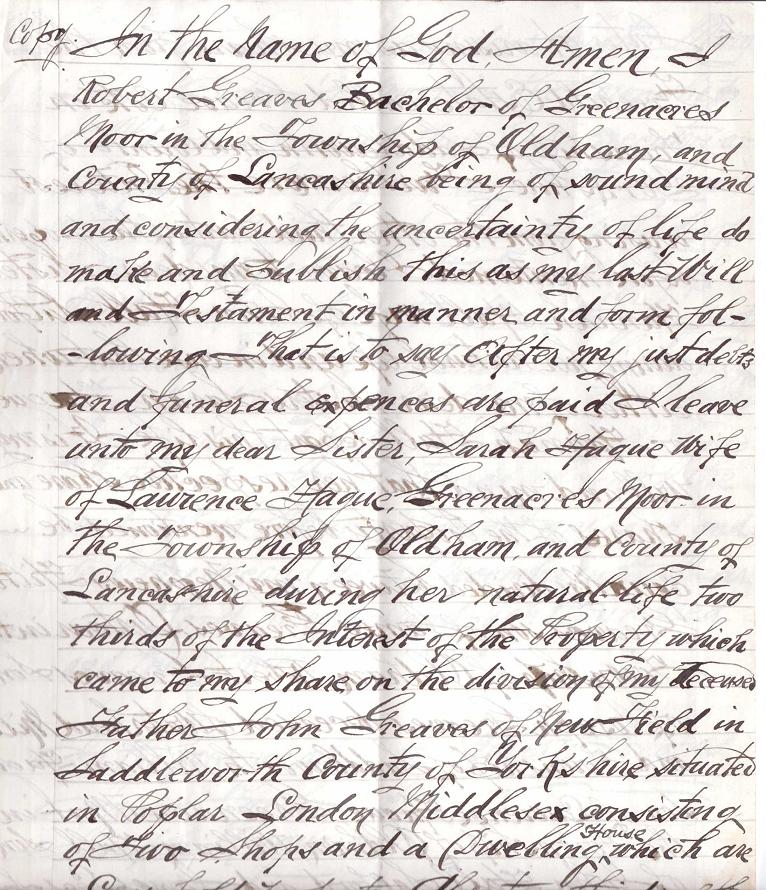 Copy. In the Name of God, Amen, I
Robert Greaves Bachelor of Greenacres
Moor in the Township of Oldham, and
County of Lancashire being of sound mind
and considering the uncertainty of life do
make and Publish this as my last Will
and Testament in manner and form fol-
-lowing That is to say After my just debts
and funeral expences are paid I leave
unto my dear Sister, Sarah Hague Wife
of Lawrence Hague, Greenacres Moor in
the Township of Oldham, and County of
Lancashire during her natural life two
thirds of the Interest of the Property which
came to my share, on the division of my Deceased
Father John Greaves of New Field in
Saddleworth County of Yorkshire situated
in Poplar London Middlesex consisting
of Two Shops and a Dwelling House which are